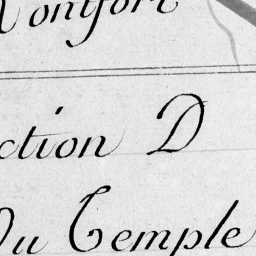 Montfort
ction D
Du Temple